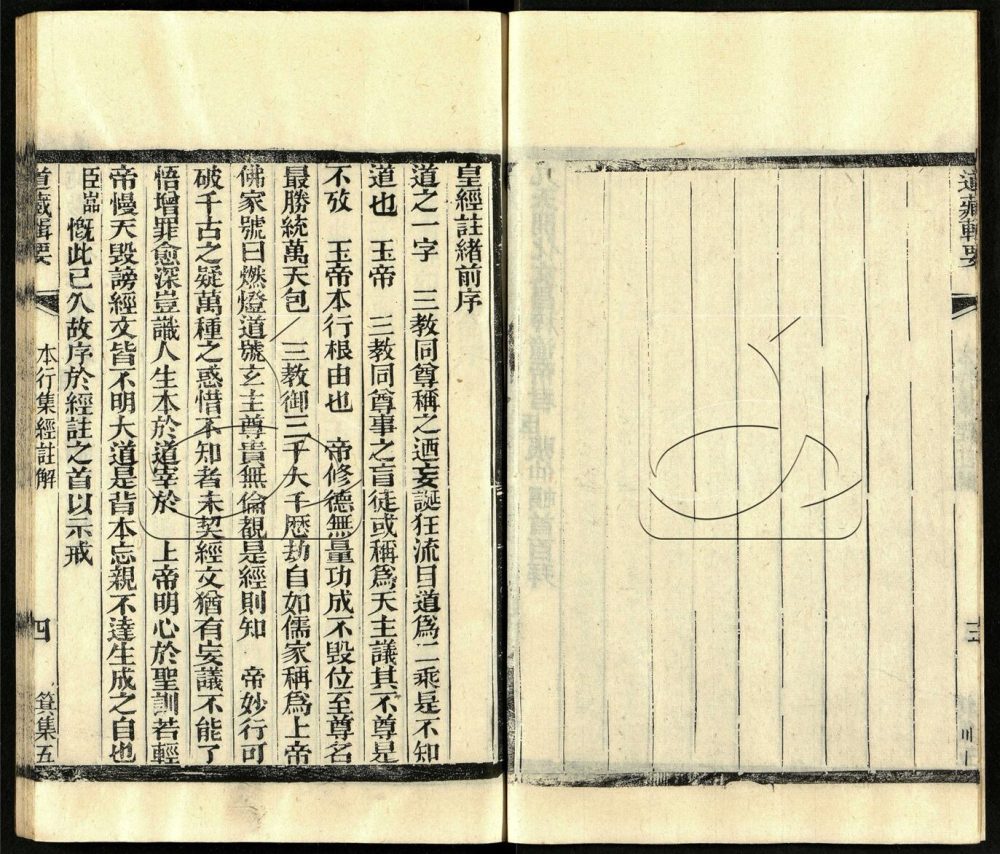 道藏輯要
三
皇經註緒前序
道之一字　三教同尊稱之迺妄誕狂流目道爲二乘是不知
道也　玉帝　三教同尊事之盲徒或稱爲天主議其不尊是
不攷　玉帝本行根由也　帝修德無量功成不毀位至尊名
最勝統萬天包　三教御三千大千歷劫自如儒家稱爲上帝
佛家號曰燃燈道號玄主尊貴無倫覩是經則知　帝妙行可
破千古之疑萬種之惑惜不知者未契經文猶有妄議不能了
悟增罪愈深豈識人生本於道宰於　上帝明心於聖訓若輕
帝慢天毀謗經文皆不明大道是背本忘親不達生成之自也
臣嚞　慨此已久故序於經註之首以示戒
道藏輯要　本行集經註解　四　箕集五